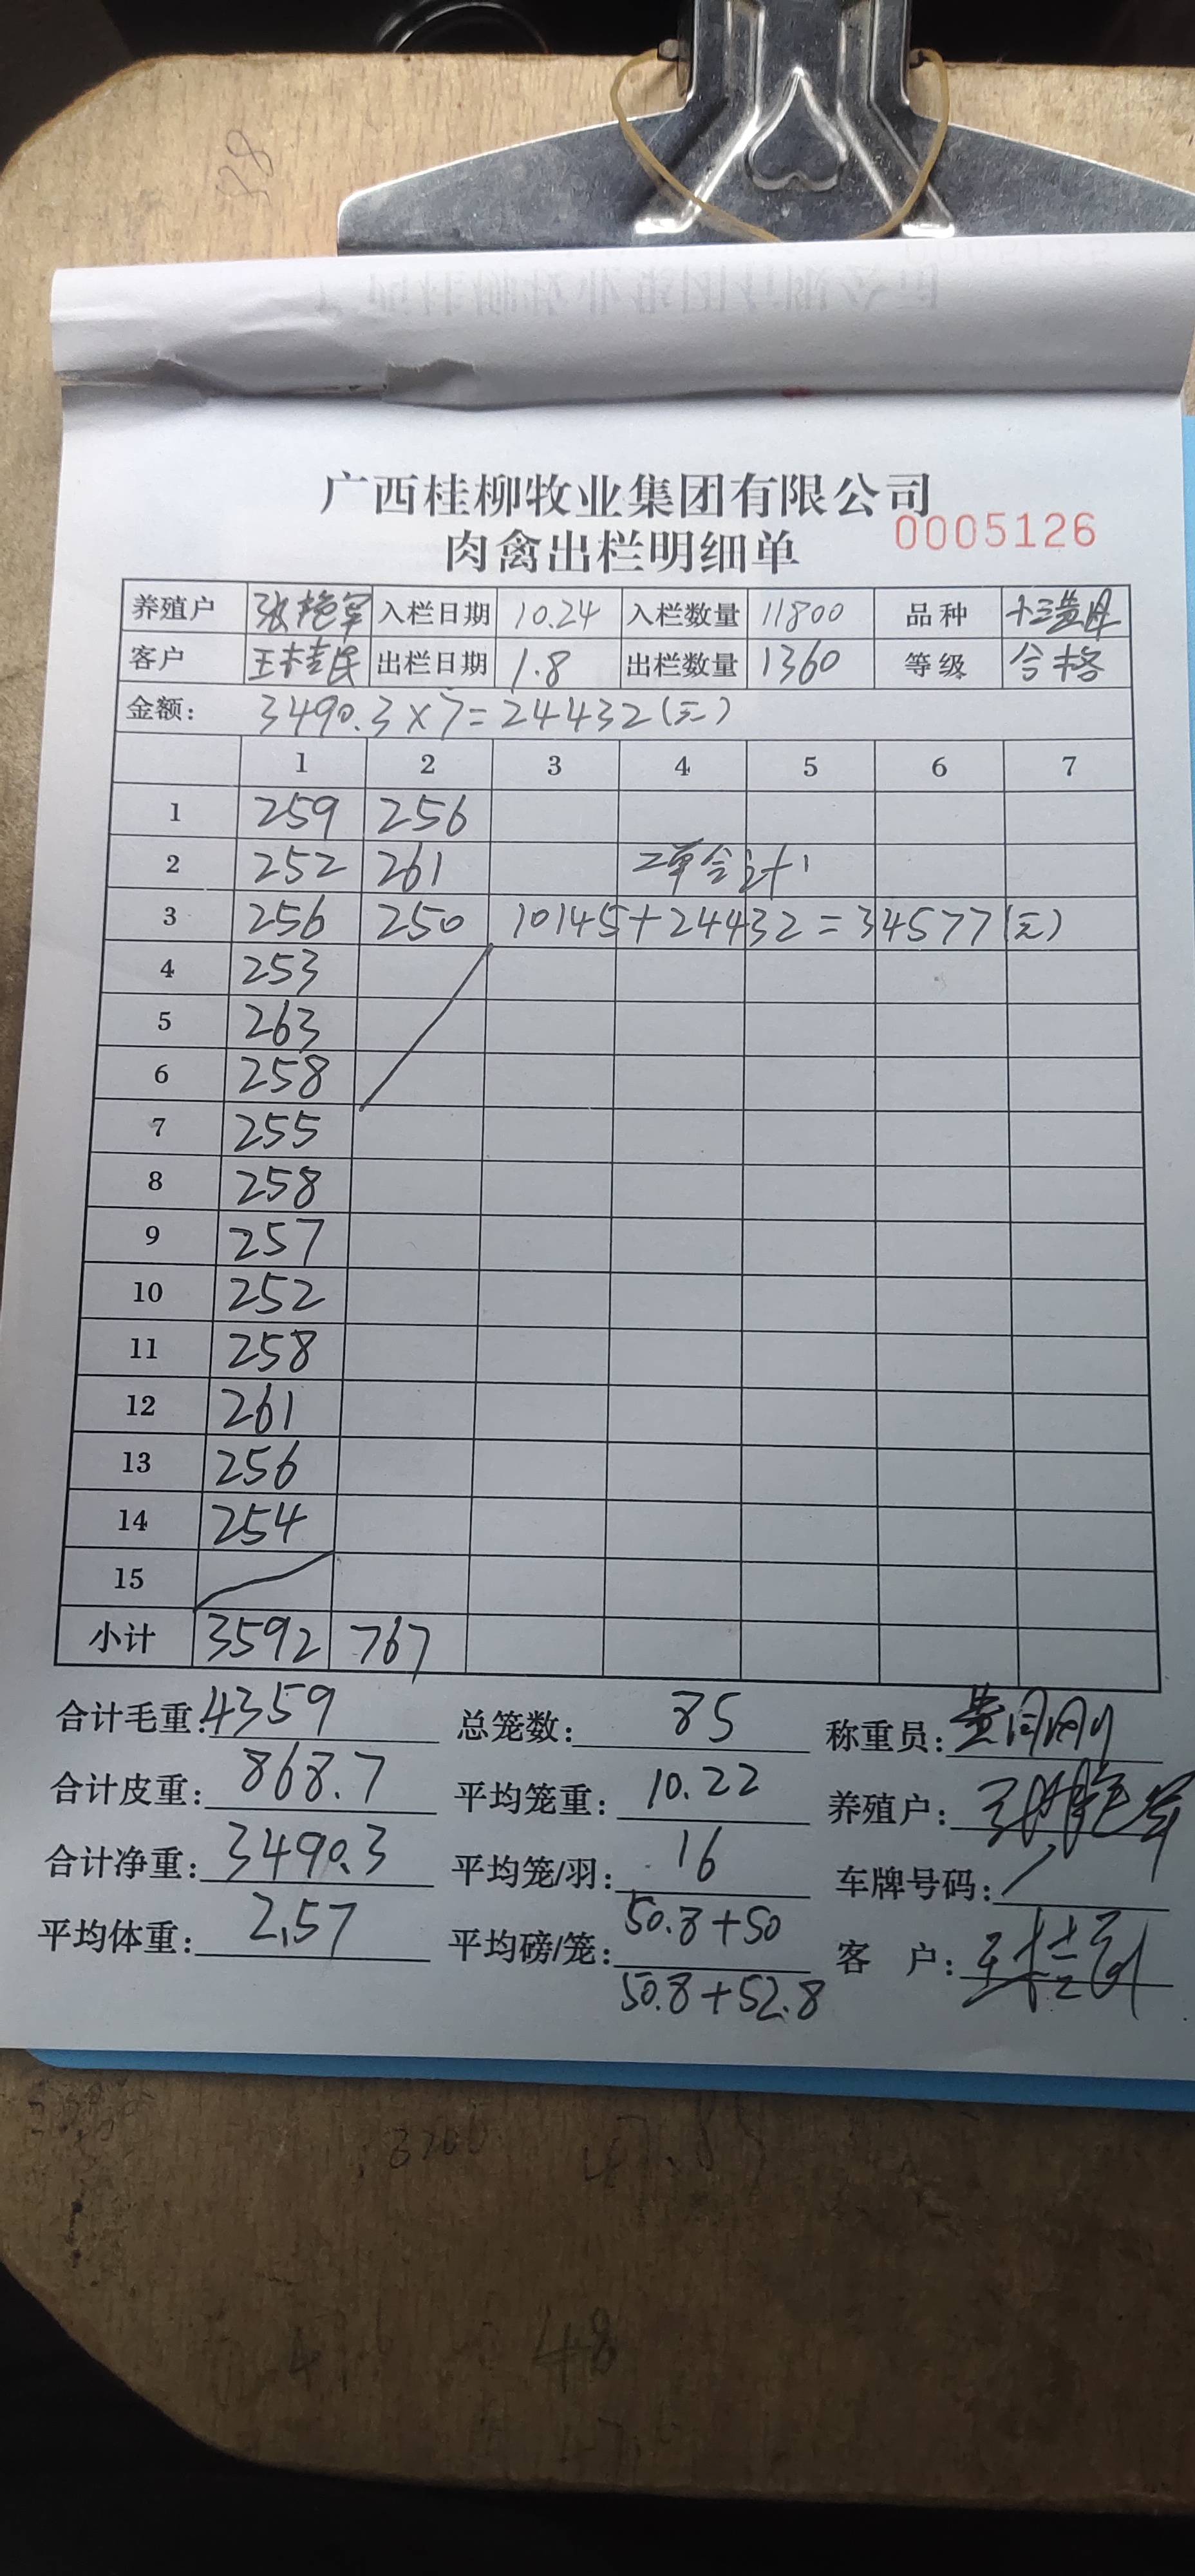 广西桂柳牧业集团有限公司
肉禽出栏明细单 0005126
养殖户 张艳军 入栏日期 10.24 入栏数量 11800 品种
客户 王桂民 出栏日期 1.8 出栏数量 1360 等级 合格
金额: 3490.3×7=24432(元)
1 2 3 4 5 6 7
1 259 256
2 252 261 2单合计
3 256 250 10145+24432=34577(元)
4 253
5 263
6 258
7 255
8 258
9 257
10 252
11 258
12 261
13 256
14 254
15
小计 3592 767
合计毛重: 4359 总笼数: 85 称重员:
合计皮重: 868.7 平均笼重: 10.22 养殖户: 张艳军
合计净重: 3490.3 平均笼/羽: 16 车牌号码:
平均体重: 2.57 平均磅/笼: 50.8+50 客 户:
50.8+52.8
48